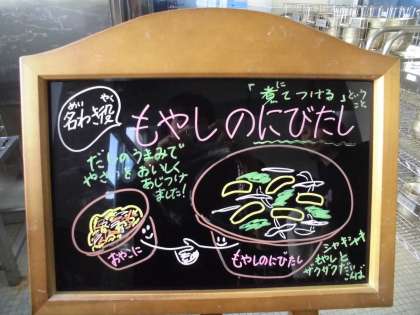 めい やく
名わき役
「煮てつける」という
に
こと
もやしのにびたし
だしのうまみで
やさいをおいしく
あじつけ
しました！
おやこに
もやしのにびたし
シャキシャキ
もやしと
ザクザクだいこんば